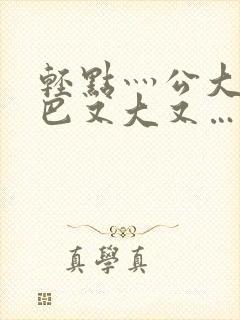 輕點灬公大
巴又大又…
真學真